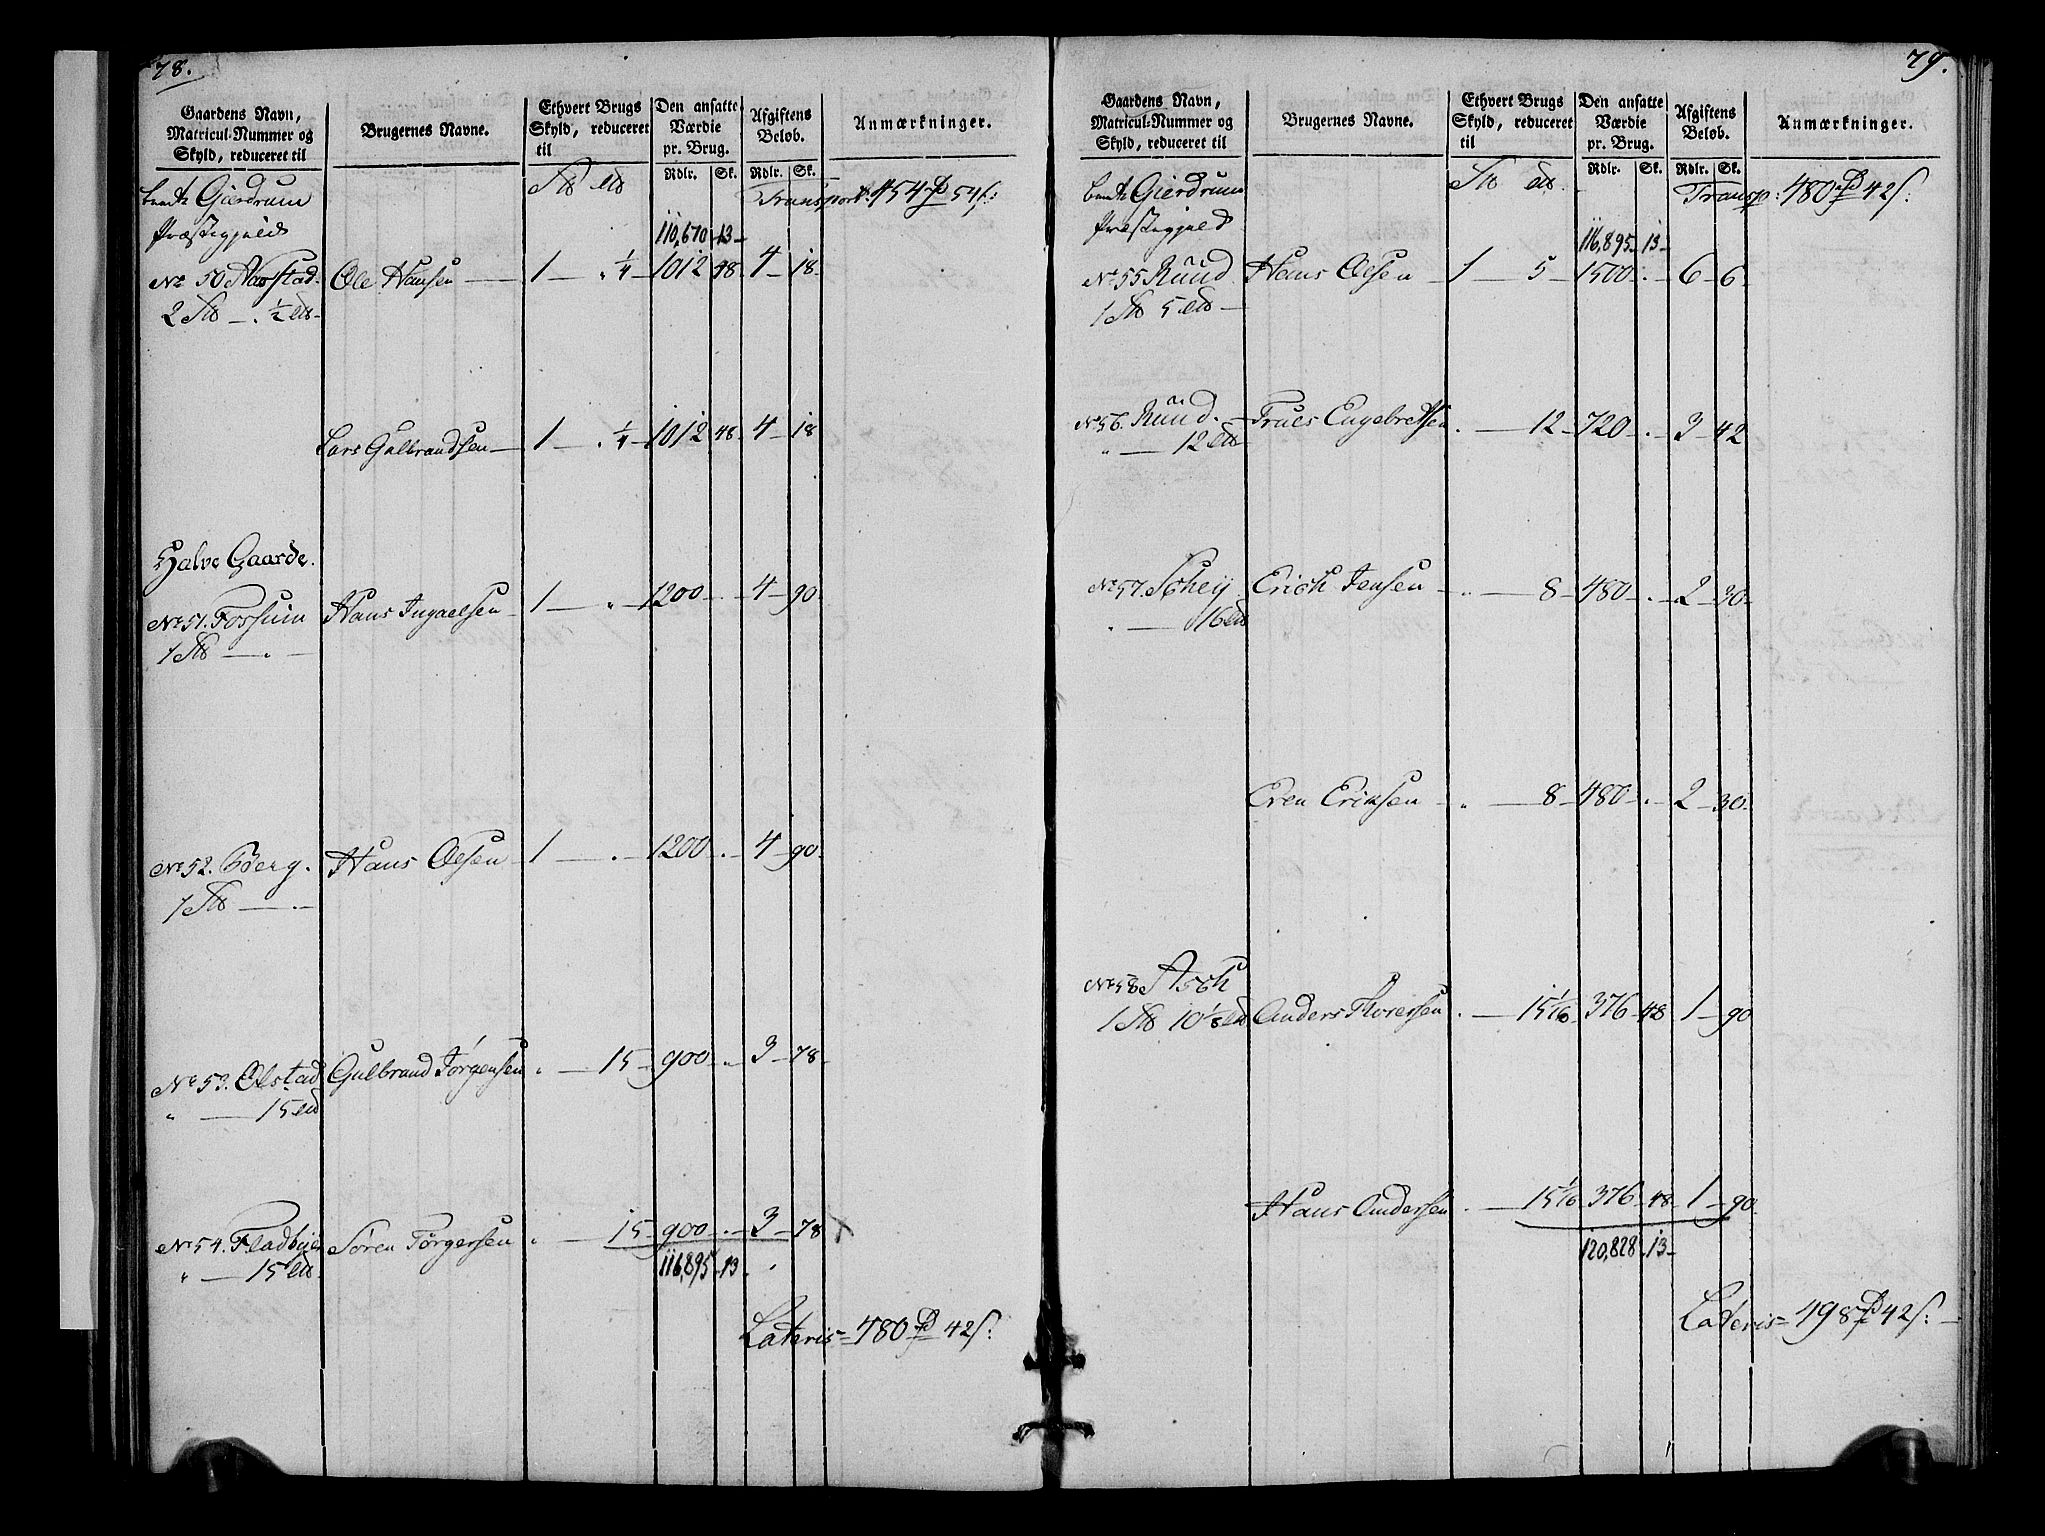 78.
Gaardens Navn, Matricul-Nummer og Skyld, reduceret til
Brugernes Navne.
Ethvert Brugs Skyld, reduceret til
Den ansatte Værdie pr. Brug.
Afgiftens Beløb.
Anmærkninger.
Rdlr. Sk. Rdlr. Sk.
Gierdrum Transport 454 54 s:
Præstegjeld 110,670 13
No 50 Ole Hansen 1 1/4 1012 48 4 18
2 1/2
Lars Gulbrandsen 1 1/4 1012 48 4 18
Halve Gaarde.
No 51. Fossum Hans Ingaelsen 1 " 1200 . 4 90
1
No 52. Berg. Hans Olsen 1 . 1200 . 4 90
1
No 53. Olstad Gulbrand Jørgensen " 15 900 " 3 78
" 15
No 54. Fladbye Søren Torgersen " 15 900 . 3 78
" 15
116,895 13
Lateris 480 42 s:
79.
Gaardens Navn, Matricul-Nummer og Skyld, reduceret til
Brugernes Navne.
Ethvert Brugs Skyld, reduceret til
Den ansatte Værdie pr. Brug.
Afgiftens Beløb.
Anmærkninger.
Rdlr. Sk. Rdlr. Sk.
Gierdrum Transp: 480 42 s:
Præstegjeld 116,895 13
No 55 Ruud Hans Olsen 1 5 1500 . 6 6
1 5
No 56. Ruud. Truls Engebretsen . 12 720 . 3 42
" 12
No 57. Scheij Erich Jensen " 8 480 . 2 30
" 16
Even Eriksen " 8 480 . 2 30
No 58 Asch
1 10 1/8 Anders Thoresen . 15 1/16 376 48 1 90
Hans Andersen . 15 1/16 376 48 1 90
120,828 13
Lateris 498 42 s: